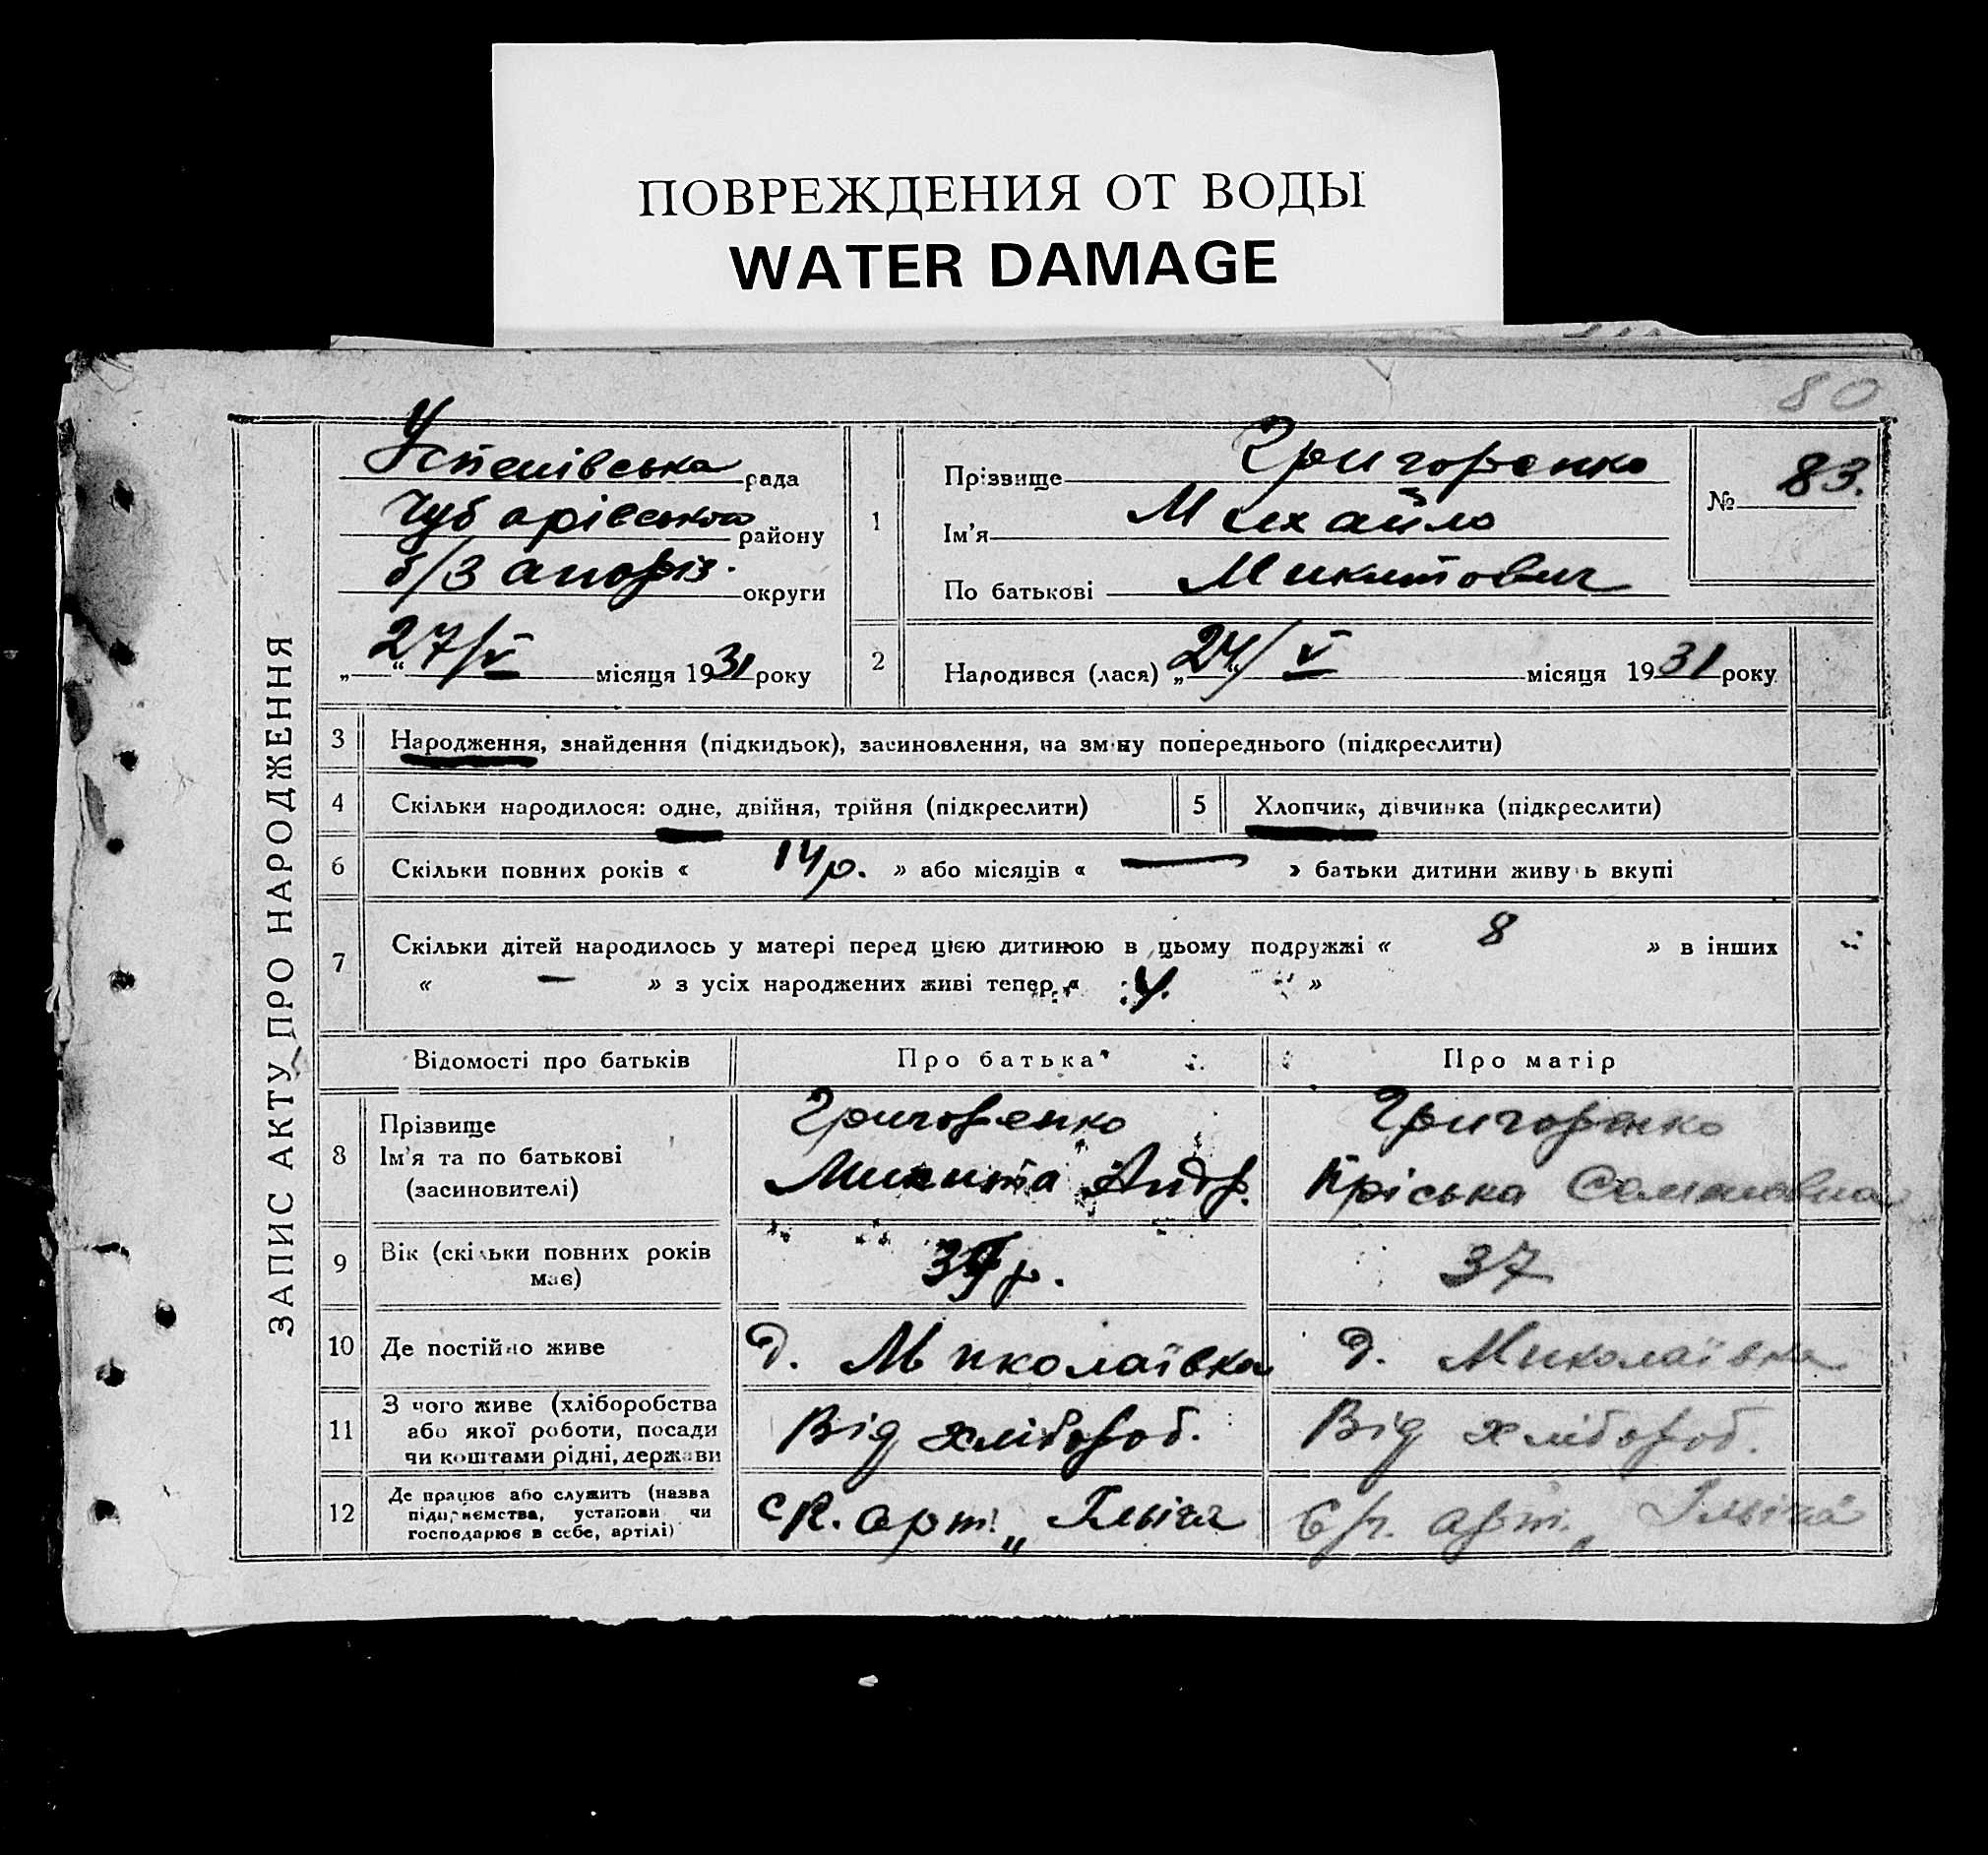 ПОВРЕЖДЕНИЯ ОТ ВОДЫ
WATER DAMAGE
80
ЗАПИС АКТУ ПРО НАРОДЖЕННЯ
Успенівська рада
Чубарівського району
б/Запоріз. округи
„27/V“ місяця 1931 року
1
Прізвище Григоренко
Ім'я Михайло
По батькові Микитович
№ 83.
2 Народився (лася) „24“/V місяця 1931 року
3 Народження, знайдення (підкидьок), засиновлення, на зміну попереднього (підкреслити)
4 Скільки народилося: одне, двійня, трійня (підкреслити) 5 Хлопчик, дівчинка (підкреслити)
6 Скільки повних років « 14 р. » або місяців « — » батьки дитини живуть вкупі
7 Скільки дітей народилось у матері перед цією дитиною в цьому подружжі « 8 » в інших
« — » з усіх народжених живі тепер « 4. »
Відомості про батьків Про батька Про матір
8 Прізвище
Ім'я та по батькові
(засиновителі)
Григоренко
Микита Андр.
Григоренко
Пріська Семеновна
9 Вік (скільки повних років
має)
р.
37
10 Де постійно живе д. Миколаївка д. Миколаївка
11 З чого живе (хліборобства
або якої роботи, посади
чи коштами рідні, держави
Від хлібороб.
Від хлібороб.
12 Де працює або служить (назва
підприємства, установи чи
господарює в себе, артілі)
арт. „Ілліча
арт. „Ілліча